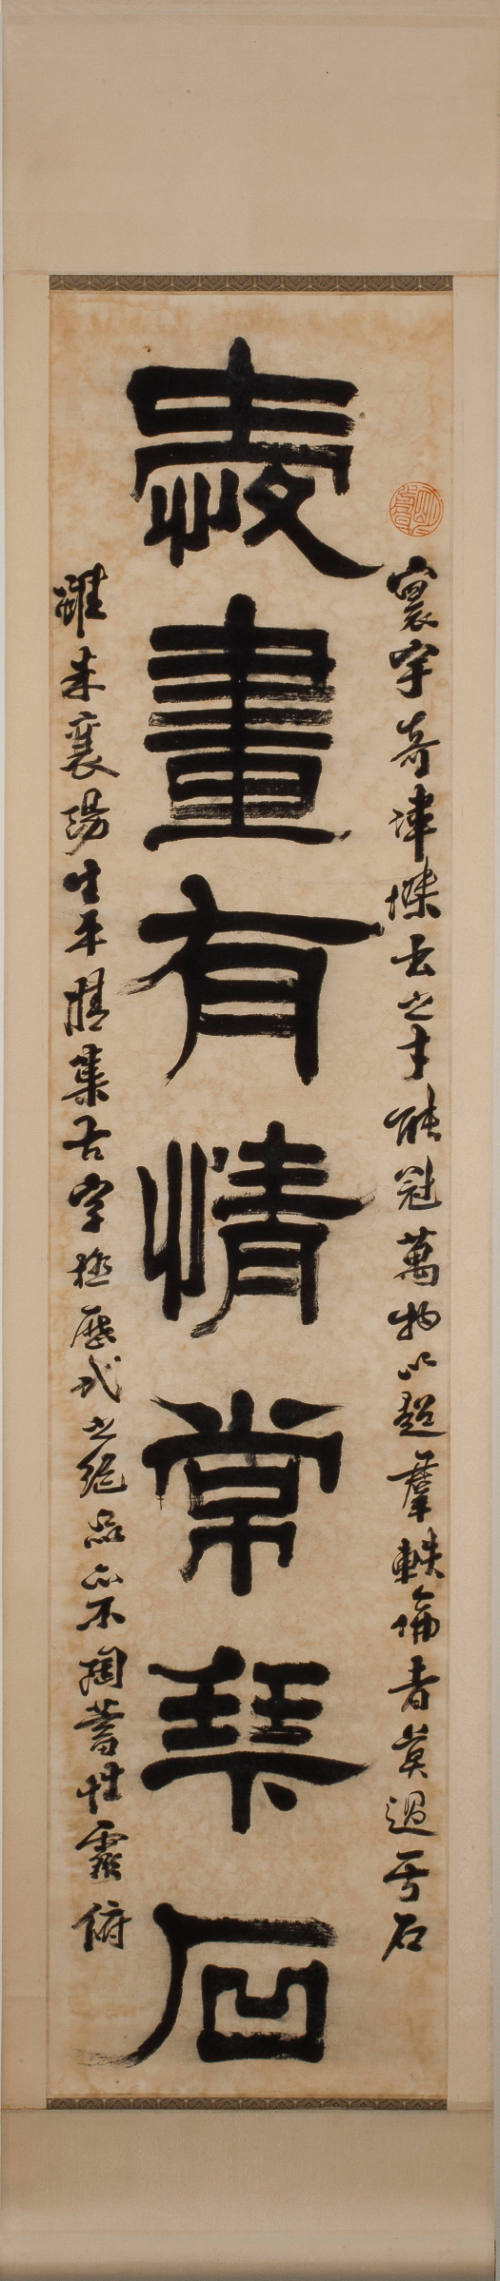 寰宇奇瑋傑出之才能冠萬物以超羣軼倫者莫過于石
愛畫有情常拜石
雖米襄陽生平購集古字極歷代之絕品亦不陶蓄性靈俯